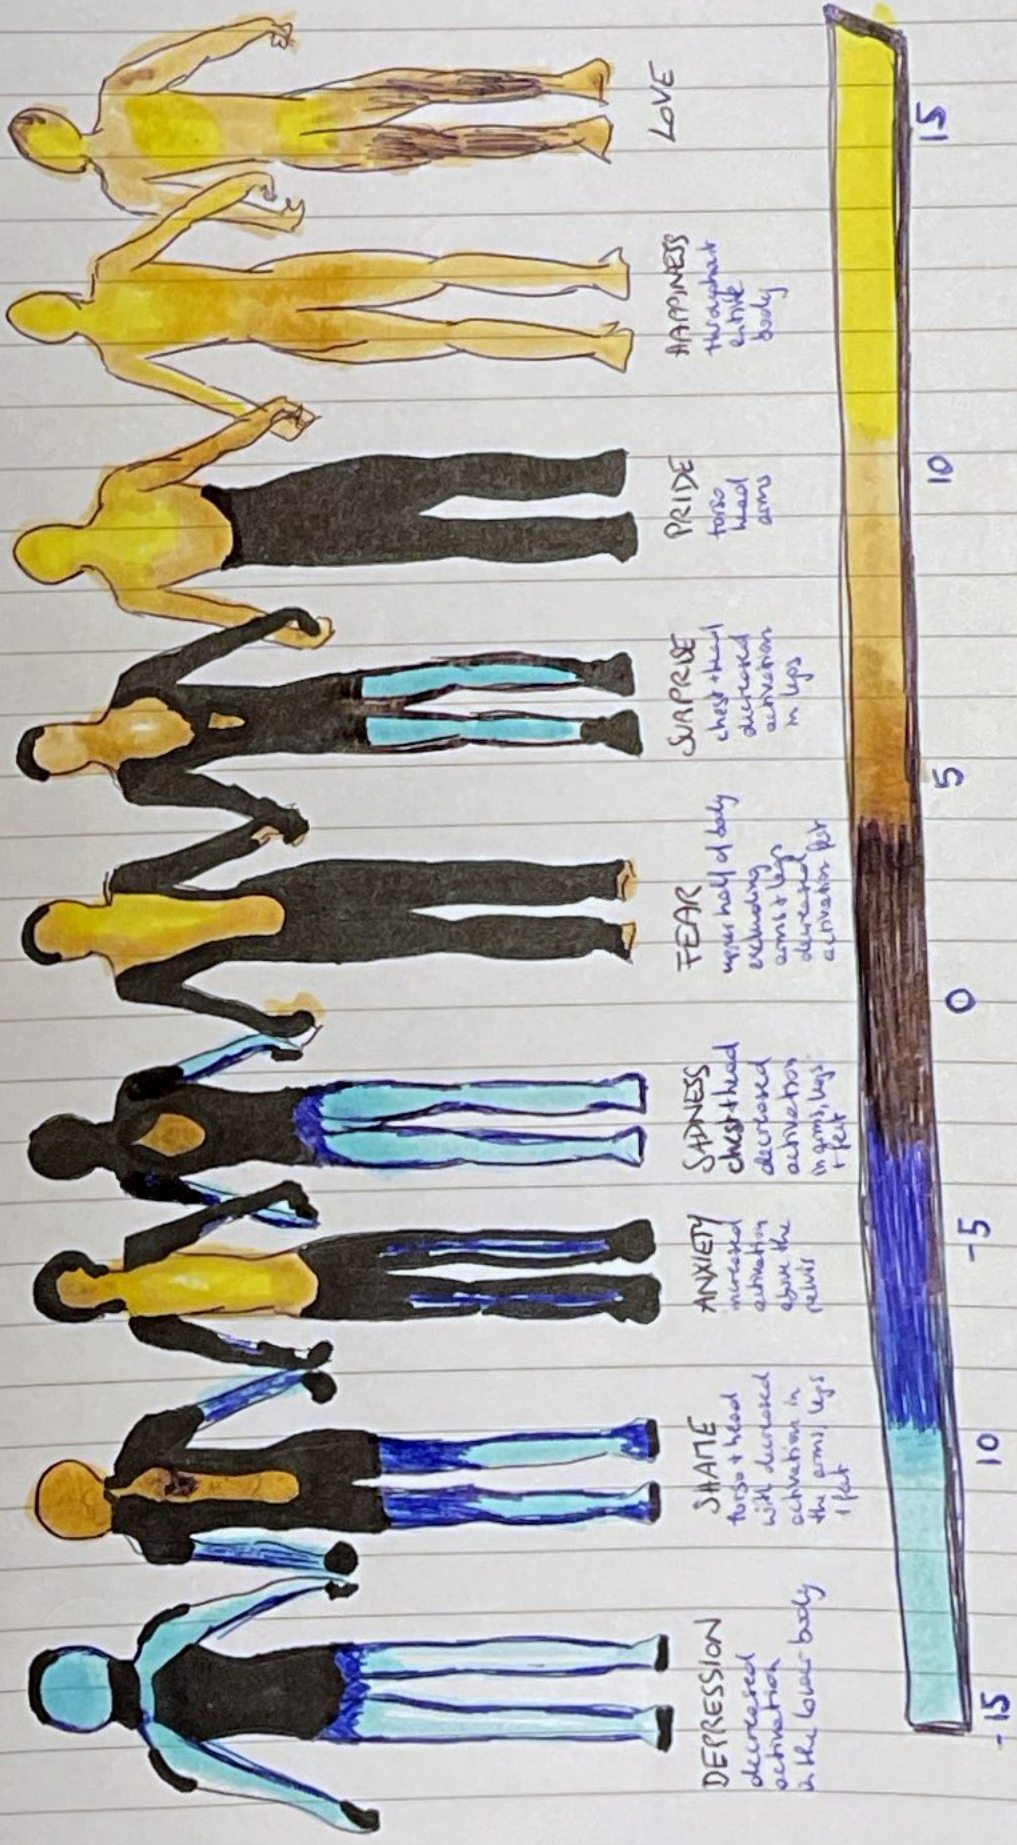 DEPRESSION
decreased
activation
in the lower body
SHAME
torso + head
with decreased
activation in
the arms, legs
+ feet
ANXIETY
increased
activation
above the
pelvis
SADNESS
chest+head
decreased
activation
in arms, legs
+ feet
FEAR
upper half of body
excluding
arms + legs
decreased
activation feet
SURPRISE
chest+head
decreased
activation
in legs
PRIDE
torso
head
arms
HAPPINESS
throughout
entire
body
LOVE
-15
10
-5
0
5
10
15